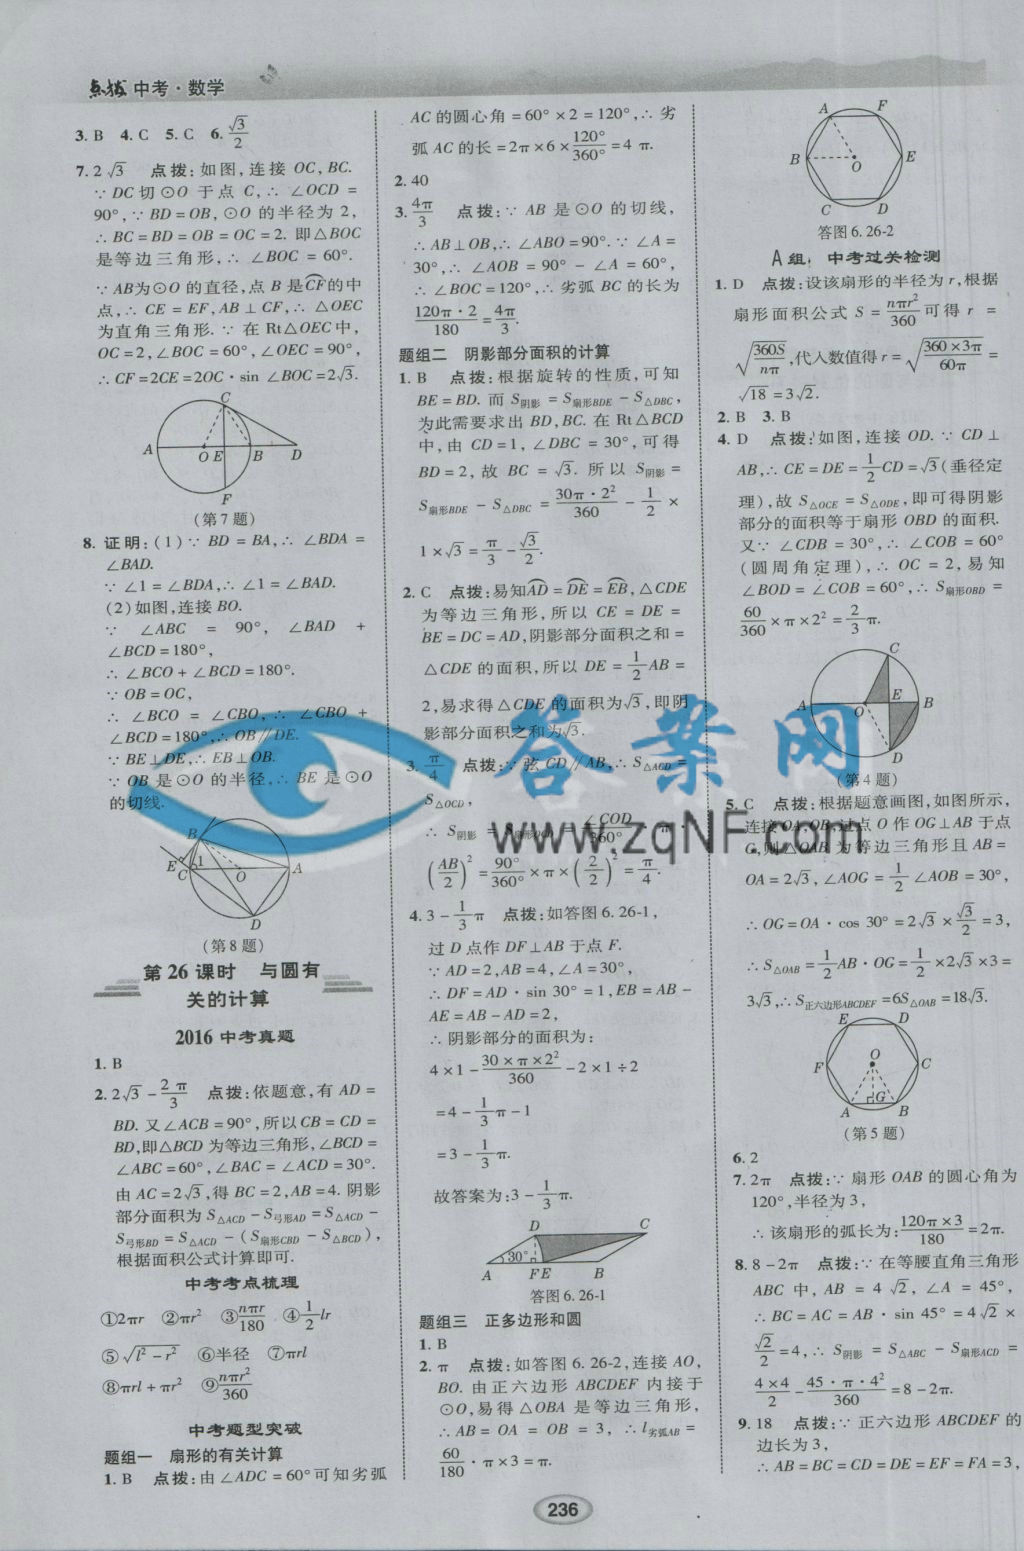 点拨 中考·数学
3. B 4. C 5. C 6. √3/2
7. 2√3 点拨:如图,连接 OC,BC.
∵ DC 切⊙O 于点 C,∴ ∠OCD =
90°,∵ BD = OB,⊙O 的半径为 2,
∴ BC = BD = OB = OC = 2. 即△BOC
是等边三角形,∴ ∠BOC = 60°.
∵ AB为⊙O 的直径,点 B 是⌒CF的中
点,∴ CE = EF,AB ⊥ CF,∴ △OEC
为直角三角形. ∵ 在 Rt△OEC 中,
OC = 2,∠BOC = 60°,∠OEC = 90°,
∴ CF = 2CE = 2OC·sin ∠BOC = 2√3.
C
A O E B D
F
(第 7 题)
8. 证明:(1) ∵ BD = BA,∴ ∠BDA =
∠BAD.
∵ ∠1 = ∠BDA,∴ ∠1 = ∠BAD.
(2)如图,连接 BO.
∵ ∠ABC = 90°, ∠BAD +
∠BCD = 180°,
∴ ∠BCO + ∠BCD = 180°.
∵ OB = OC,
∴ ∠BCO = ∠CBO,∴ ∠CBO +
∠BCD = 180°,∴ OB∥DE.
∵ BE⊥DE,∴ EB⊥OB.
∵ OB 是⊙O 的半径,∴ BE 是⊙O
的切线.
B
E C 1 O A
D
(第 8 题)
第 26 课时 与圆有
关的计算
2016 中考真题
1. B
2. 2√3 - 2π/3 点拨:依题意,有 AD =
BD. 又∠ACB = 90°,所以 CB = CD =
BD,即△BCD 为等边三角形,∠BCD =
∠ABC = 60°,∠BAC = ∠ACD = 30°.
由 AC = 2√3,得 BC = 2,AB = 4. 阴影
部分面积为 S△ACD - S弓形AD = S△ACD -
S弓形BD = S△ACD - (S扇形CBD - S△BCD),
根据面积公式计算即可.
中考考点梳理
①2πr ②πr² ③nπr/180 ④1/2 lr
⑤√(l² - r²) ⑥半径 ⑦πrl
⑧πrl + πr² ⑨nπr²/360
中考题型突破
题组一 扇形的有关计算
1. B 点拨:由∠ADC = 60°可知劣弧
AC 的圆心角 = 60° × 2 = 120°,∴ 劣
弧 AC 的长 = 2π × 6 × 120°/360° = 4π.
2. 40
3. 4π/3 点拨:∵ AB 是⊙O 的切线,
∴ AB⊥OB,∴ ∠ABO = 90°. ∵ ∠A =
30°,∴ ∠AOB = 90° - ∠A = 60°,
∴ ∠BOC = 120°,∴ 劣弧 BC 的长为
120π·2/180 = 4π/3.
题组二 阴影部分面积的计算
1. B 点拨:根据旋转的性质,可知
BE = BD. 而 S阴影 = S扇形BDE - S△DBC,
为此需要求出 BD,BC. 在 Rt△BCD
中,由 CD = 1,∠DBC = 30°,可得
BD = 2, 故 BC = √3. 所以 S阴影 =
S扇形BDE - S△DBC = 30π·2²/360 - 1/2 ×
1 × √3 = π/3 - √3/2.
2. C 点拨:易知⌒AD = ⌒DE = ⌒EB,△CDE
为等边三角形,所以 CE = DE =
BE = DC = AD,阴影部分面积之和 =
△CDE 的面积,所以 DE = 1/2 AB =
2,易求得△CDE 的面积为√3,即阴
影部分面积之和为√3.
3. π/4 点拨:∵ 弦 CD∥AB,∴ S△ACD =
S△OCD,
∴ S阴影 = S扇形OCD = ∠COD/360° · π ·
(AB/2)² = 90°/360° × π × (2/2)² = π/4.
4. 3 - 1/3 π 点拨:如答图 6.26-1,
过 D 点作 DF⊥AB 于点 F.
∵ AD = 2,AB = 4,∠A = 30°,
∴ DF = AD·sin 30° = 1,EB = AB -
AE = AB - AD = 2,
∴ 阴影部分的面积为:
4 × 1 - 30 × π × 2²/360 - 2 × 1 ÷ 2
= 4 - 1/3 π - 1
= 3 - 1/3 π.
故答案为:3 - 1/3 π.
D C
30°
A F E B
答图 6.26-1
题组三 正多边形和圆
1. B
2. π 点拨:如答图 6.26-2,连接 AO,
BO. 由正六边形 ABCDEF 内接于
⊙O,易得△OBA 是等边三角形,
∴ AB = OA = OB = 3, ∴ l劣弧AB =
60/180 · π × 3 = π.
A F
B E
O
C D
答图 6.26-2
A 组: 中考过关检测
1. D 点拨:设该扇形的半径为 r,根据
扇形面积公式 S = nπr²/360 可得 r =
√(360S/nπ),代入数值得 r = √(360 × 3π/60π) =
√18 = 3√2.
2. B 3. B
4. D 点拨:如图,连接 OD. ∵ CD⊥
AB,∴ CE = DE = 1/2 CD = √3(垂径定
理),故 S△OCE = S△ODE,即可得阴影
部分的面积等于扇形 OBD 的面积.
又∵ ∠CDB = 30°,∴ ∠COB = 60°
(圆周角定理),∴ OC = 2,易知
∠BOD = ∠COB = 60°,∴ S扇形OBD =
60/360 × π × 2² = 2/3 π.
C
E
A O B
D
(第 4 题)
5. C 点拨:根据题意画图,如图所示,
连接 OA,OB,过点 O 作 OG⊥AB 于点
G,则△OAB 为等边三角形且 AB =
OA = 2√3,∠AOG = 1/2 ∠AOB = 30°,
∴ OG = OA·cos 30° = 2√3 × √3/2 = 3,
∴ S△OAB = 1/2 AB·OG = 1/2 × 2√3 × 3 =
3√3,∴ S正六边形ABCDEF = 6S△OAB = 18√3.
E D
O
F C
G
A B
(第 5 题)
6. 2
7. 2π 点拨:∵ 扇形 OAB 的圆心角为
120°,半径为 3,
∴ 该扇形的弧长为:120π × 3/180 = 2π.
8. 8 - 2π 点拨:∵ 在等腰直角三角形
ABC 中,AB = 4√2,∠A = 45°,
∴ BC = AC = AB·sin 45° = 4√2 ×
√2/2 = 4,∴ S阴影 = S△ABC - S扇形ACD =
4 × 4/2 - 45·π·4²/360 = 8 - 2π.
9. 18 点拨:∵ 正六边形 ABCDEF 的
边长为 3,
∴ AB = BC = CD = DE = EF = FA = 3,
236
答案网
www.zqNF.com